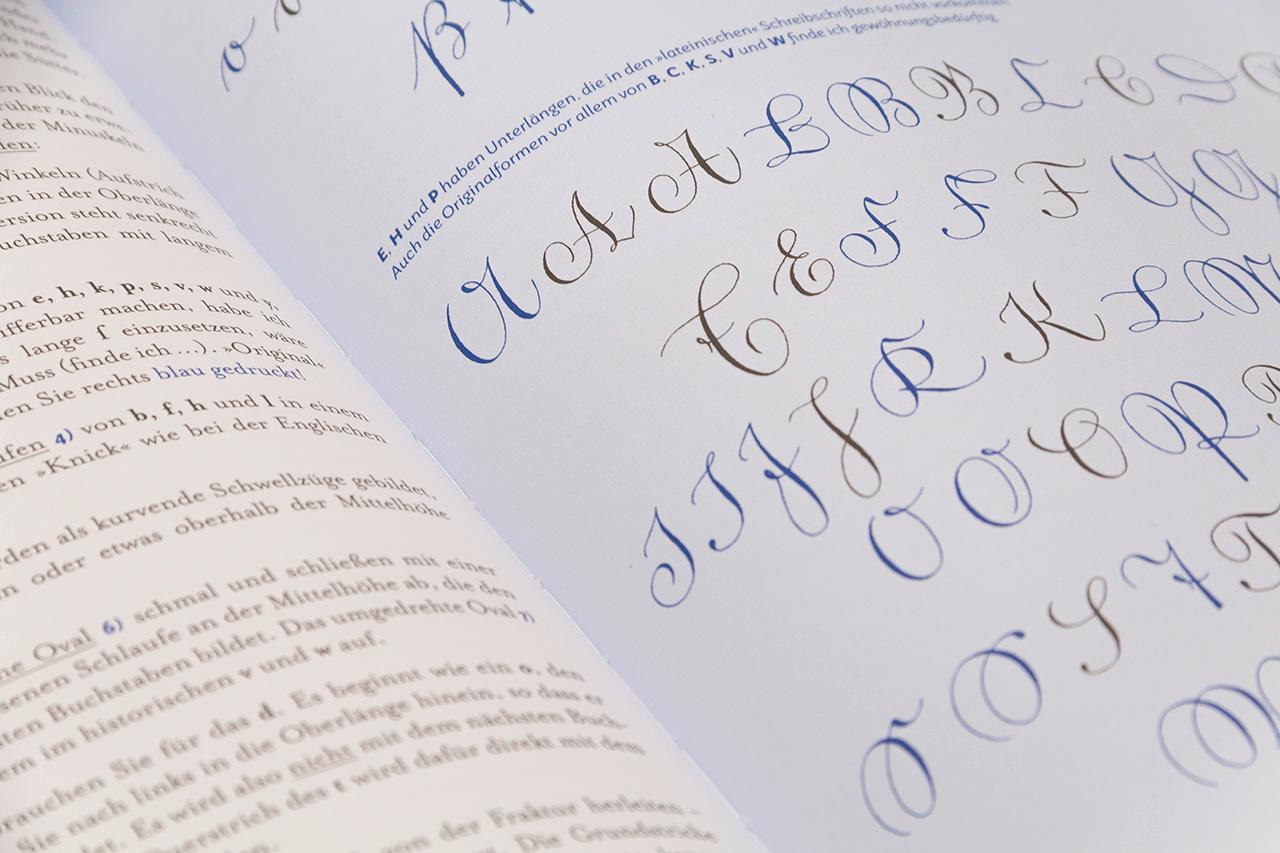 mehr
Sütter-
Blick den
früher zu erwe-
der Minuskeln
Winkeln (Aufstrich
en in der Oberlänge
ersion steht senkrecht
uchstaben mit langem
on e, h, k, p, s, v, w und y,
ifferbar machen, habe ich
s lange ſ einzusetzen, wäre
Muss (finde ich …). »Original«
en Sie rechts blau gedruckt!
ufen 4) von b, f, h und l in einem
en »Knick« wie bei der Englischen
rden als kurvende Schwellzüge gebildet,
n oder etwas oberhalb der Mittelhöhe
ne Oval 6) schmal und schließen mit einer
senen Schlaufe an der Mittelhöhe ab, die den
ten Buchstaben bildet. Das umgedrehte Oval 7)
em im historischen v und w auf.
rauchen Sie für das d. Es beginnt wie ein o, den
Sie nach links in die Oberlänge hinein, so dass er
det. Es wird also nicht mit dem nächsten Buch-
Querstrich des t wird dafür direkt mit dem
von der Fraktur herleiten –
Die Grundstriche
v v
B
E, H und P haben Unterlängen, die in den »lateinischen« Schreibschriften so nicht vorkommen.
Auch die Originalformen vor allem von B, C, K, S, V und W finde ich gewöhnungsbedürftig.
A A A B B B C C D
E E F F F G G
I I J J K K L M
O O O P P
Q Q S T T